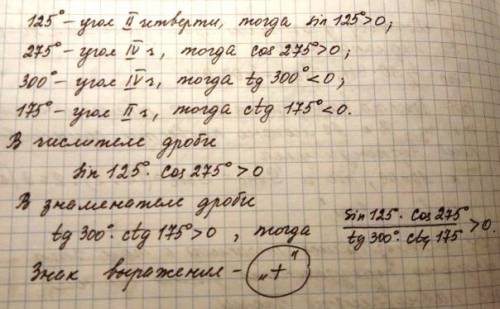 125° – угол II четверти, тогда sin 125° > 0;
275° – угол IV ч, тогда cos 275° > 0;
300° – угол IV ч, тогда tg 300° < 0;
175° – угол II ч, тогда ctg 175° < 0.
В числителе дроби
sin 125° · cos 275° > 0
В знаменателе дроби
tg 300° · ctg 175° > 0, тогда (sin 125 · cos 275°)/(tg 300° · ctg 175°) > 0.
Знак выражение – „+"